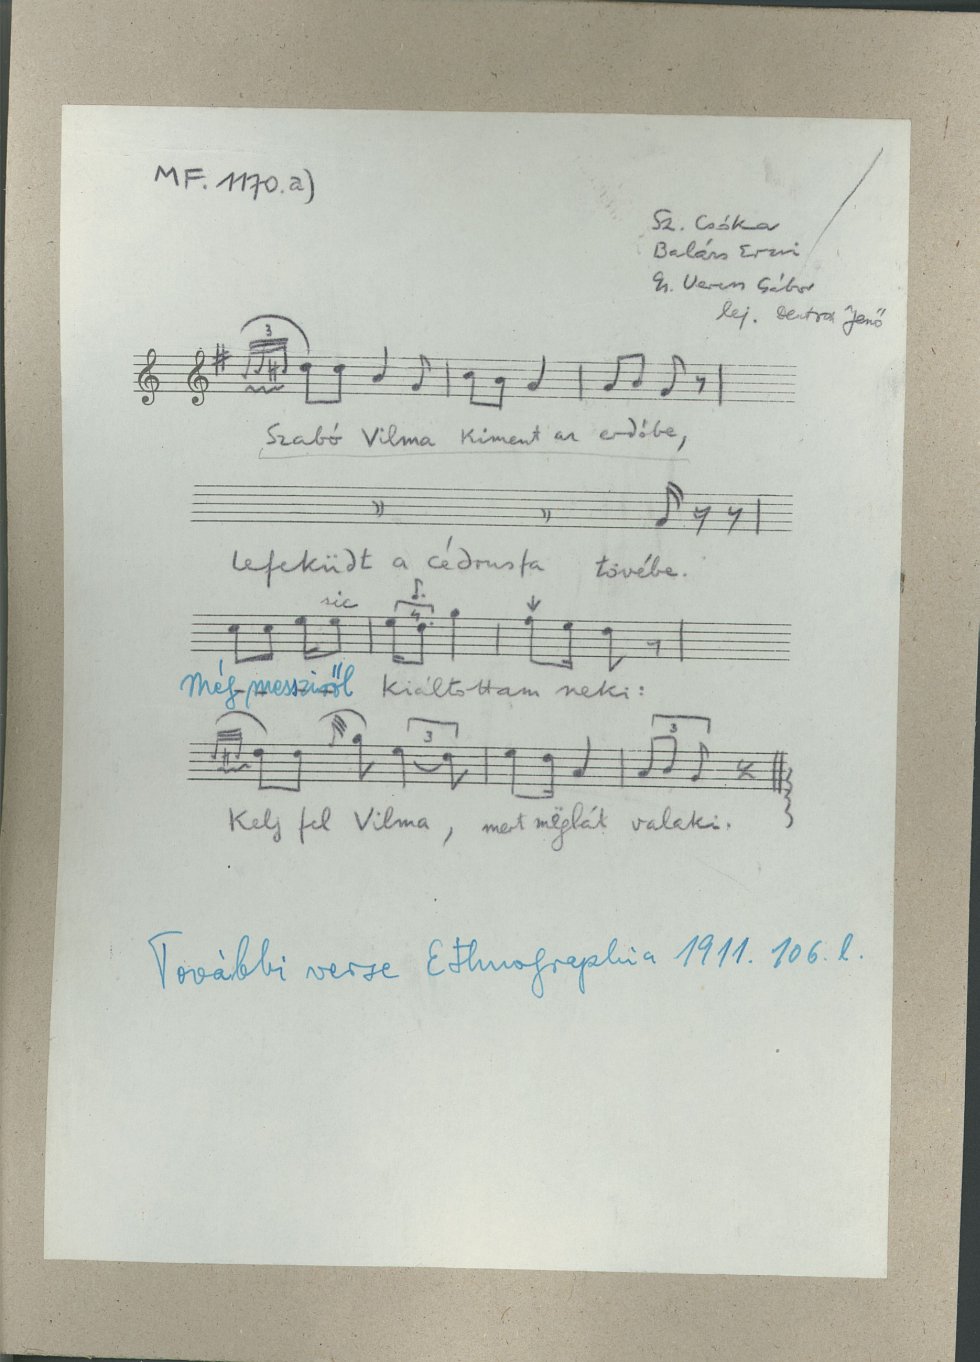 MF. 1170.a)
Sz. Csóka
Balázs Erzsi
Gy. Veress Gábor
lej. Jenő
3
Szabó Vilma kiment az erdőbe,
lefeküdt a cédrusfa tövébe.
sic
Még messziről kiáltottam neki:
3
Kelj fel Vilma, mert möglát valaki.
3
További verse Ethnographia 1911. 106. l.